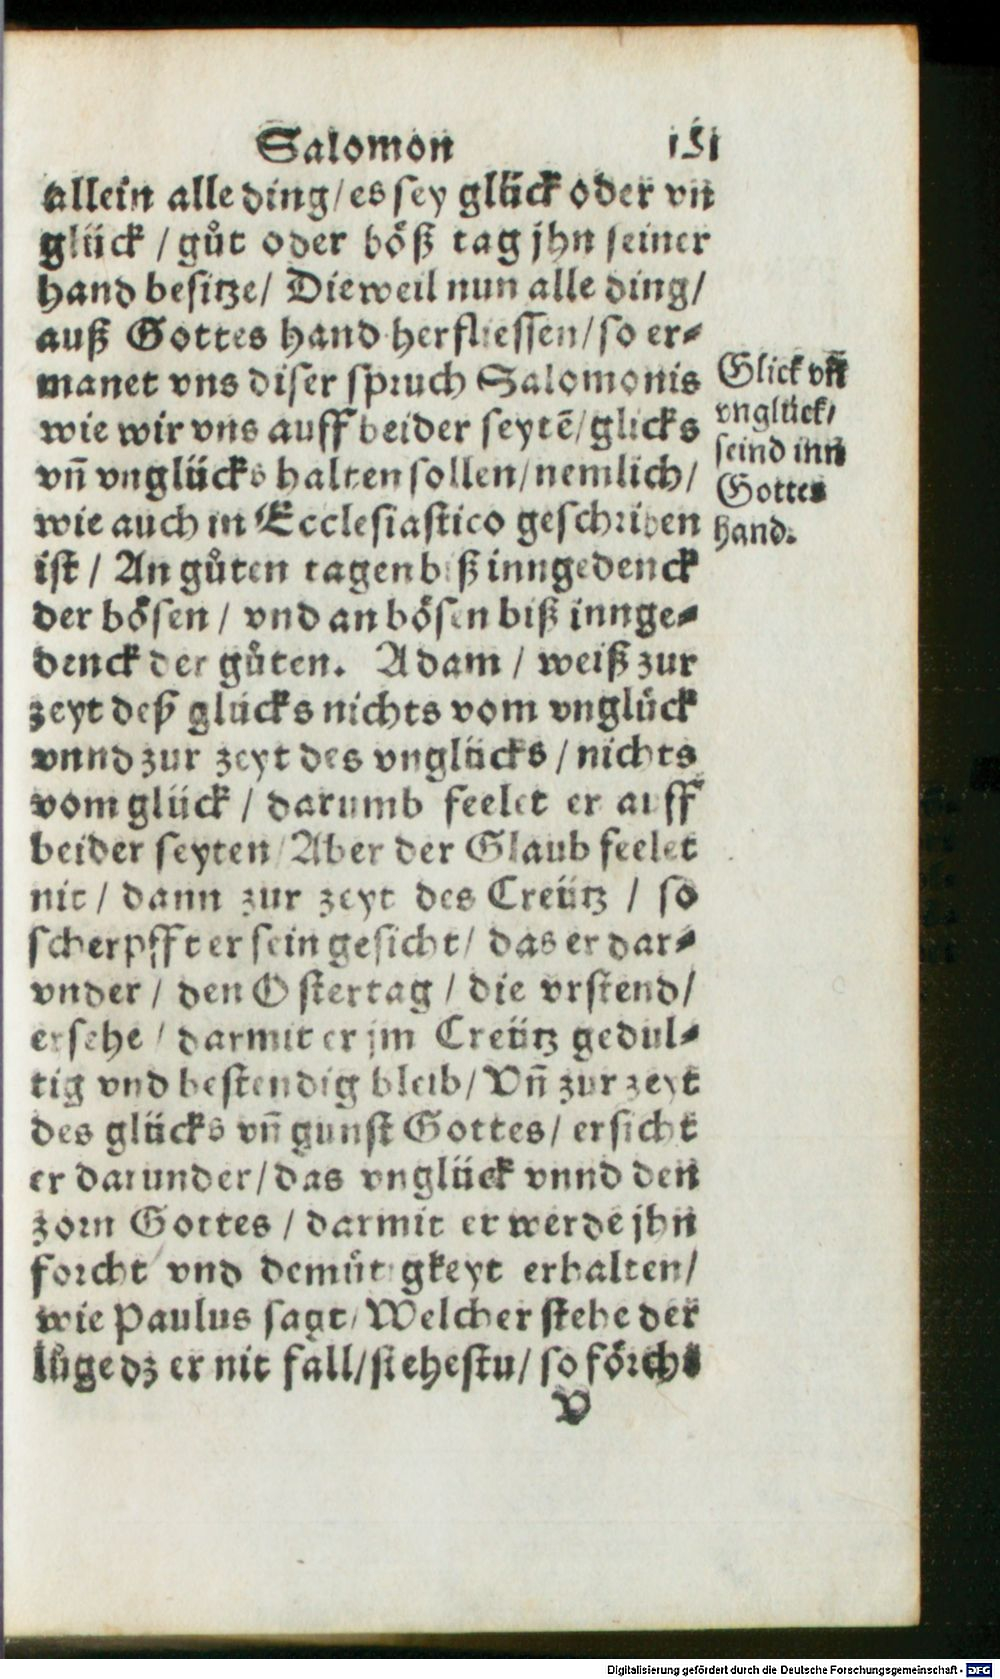 Salomon 151
allein alle ding / es sey glück oder vn
glück / gůt oder böß tag jhn seiner
hand besitze / Dieweil nun alle ding /
auß Gottes hand herfliessen / so er⸗
manet vns diser spruch Salomonis
wie wir vns auff beider seytē / glicks
vñ vnglücks halten sollen / nemlich /
wie auch in Ecclesiastico geschriben
ist / An gůten tagen biß inngedenck
der bösen / vnd an bösen biß innge⸗
denck der gůten. Adam / weiß zur
zeyt deß glücks nichts vom vnglück
vnnd zur zeyt des vnglücks / nichts
vom glück / darumb feelet er auff
beider seyten / Aber der Glaub feelet
nit / dann zur zeyt des Creütz / so
scherpfft er sein gesicht / das er dar⸗
vnder / den Ostertag / die vrstend /
ersehe / darmit er jm Creütz gedul⸗
tig vnd bestendig bleib / Vñ zur zeyt
des glücks vñ gunst Gottes / ersicht
er darunder / das vnglück vnnd den
zorn Gottes / darmit er werde jhn
forcht vnd demůtigkeyt erhalten /
wie Paulus sagt / Welcher stehe der
lůge dz er nit fall / stehestu / so förcht
V
Glick vñ
vnglück /
seind inn
Gottes
hand.
Digitalisierung gefördert durch die Deutsche Forschungsgemeinschaft - DFG